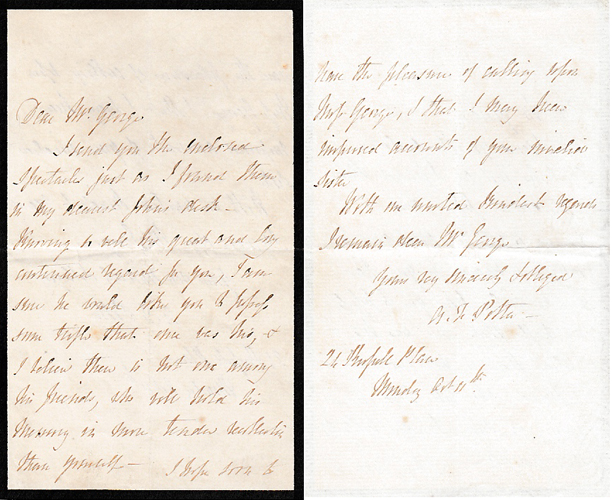 Dear Mr. George
I send you the enclosed
spectacles just as I found them
in my dearest John's desk –
Knowing as I do his great and long
continued regard for you, I am
sure he would like you to possess
some trifle that once was his, &
I believe there is not one among
his friends, who will hold his
Memory in more tender recollection
than yourself – I hope soon to
have the pleasure of calling upon
Mrs. George, & that I may hear
improved accounts of your invalid
sister
With our united kindest regards
I remain dear Mr. George
Yours very sincerely obliged
Potter –
24 Place
Monday Oct 11th.